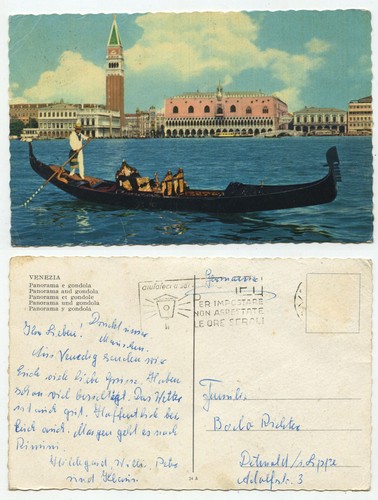 VENEZIA
Panorama e gondola
Panorama and gondola
Panorama et gondole
Panorama und gondola
Panorama y gondola
PER IMPOSTARE
NON ASPETTATE
LE ORE SERALI
Germania
Ihr Lieben!
Aus Venedig senden wir
Euch viele liebe Grüsse. Haben
schon viel besichtigt. Das Wetter
ist auch gut. Hoffentlich bei
Euch auch. Morgen geht es nach
Rimini.
Hildegard, Willi, Petra
und Klaus.
Familie
Bodo Richter
Detmold / Lippe
Adolfstr. 3